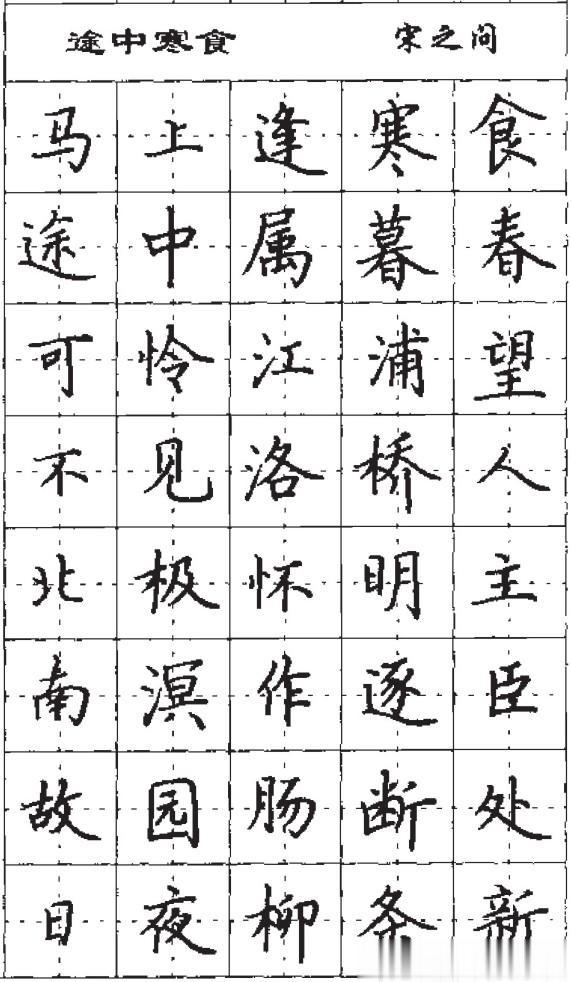 途中寒食 宋之问
马上逢寒食
途中属暮春
可怜江浦望
不见洛桥人
北极怀明主
南溟作逐臣
故园肠断处
日夜柳条新